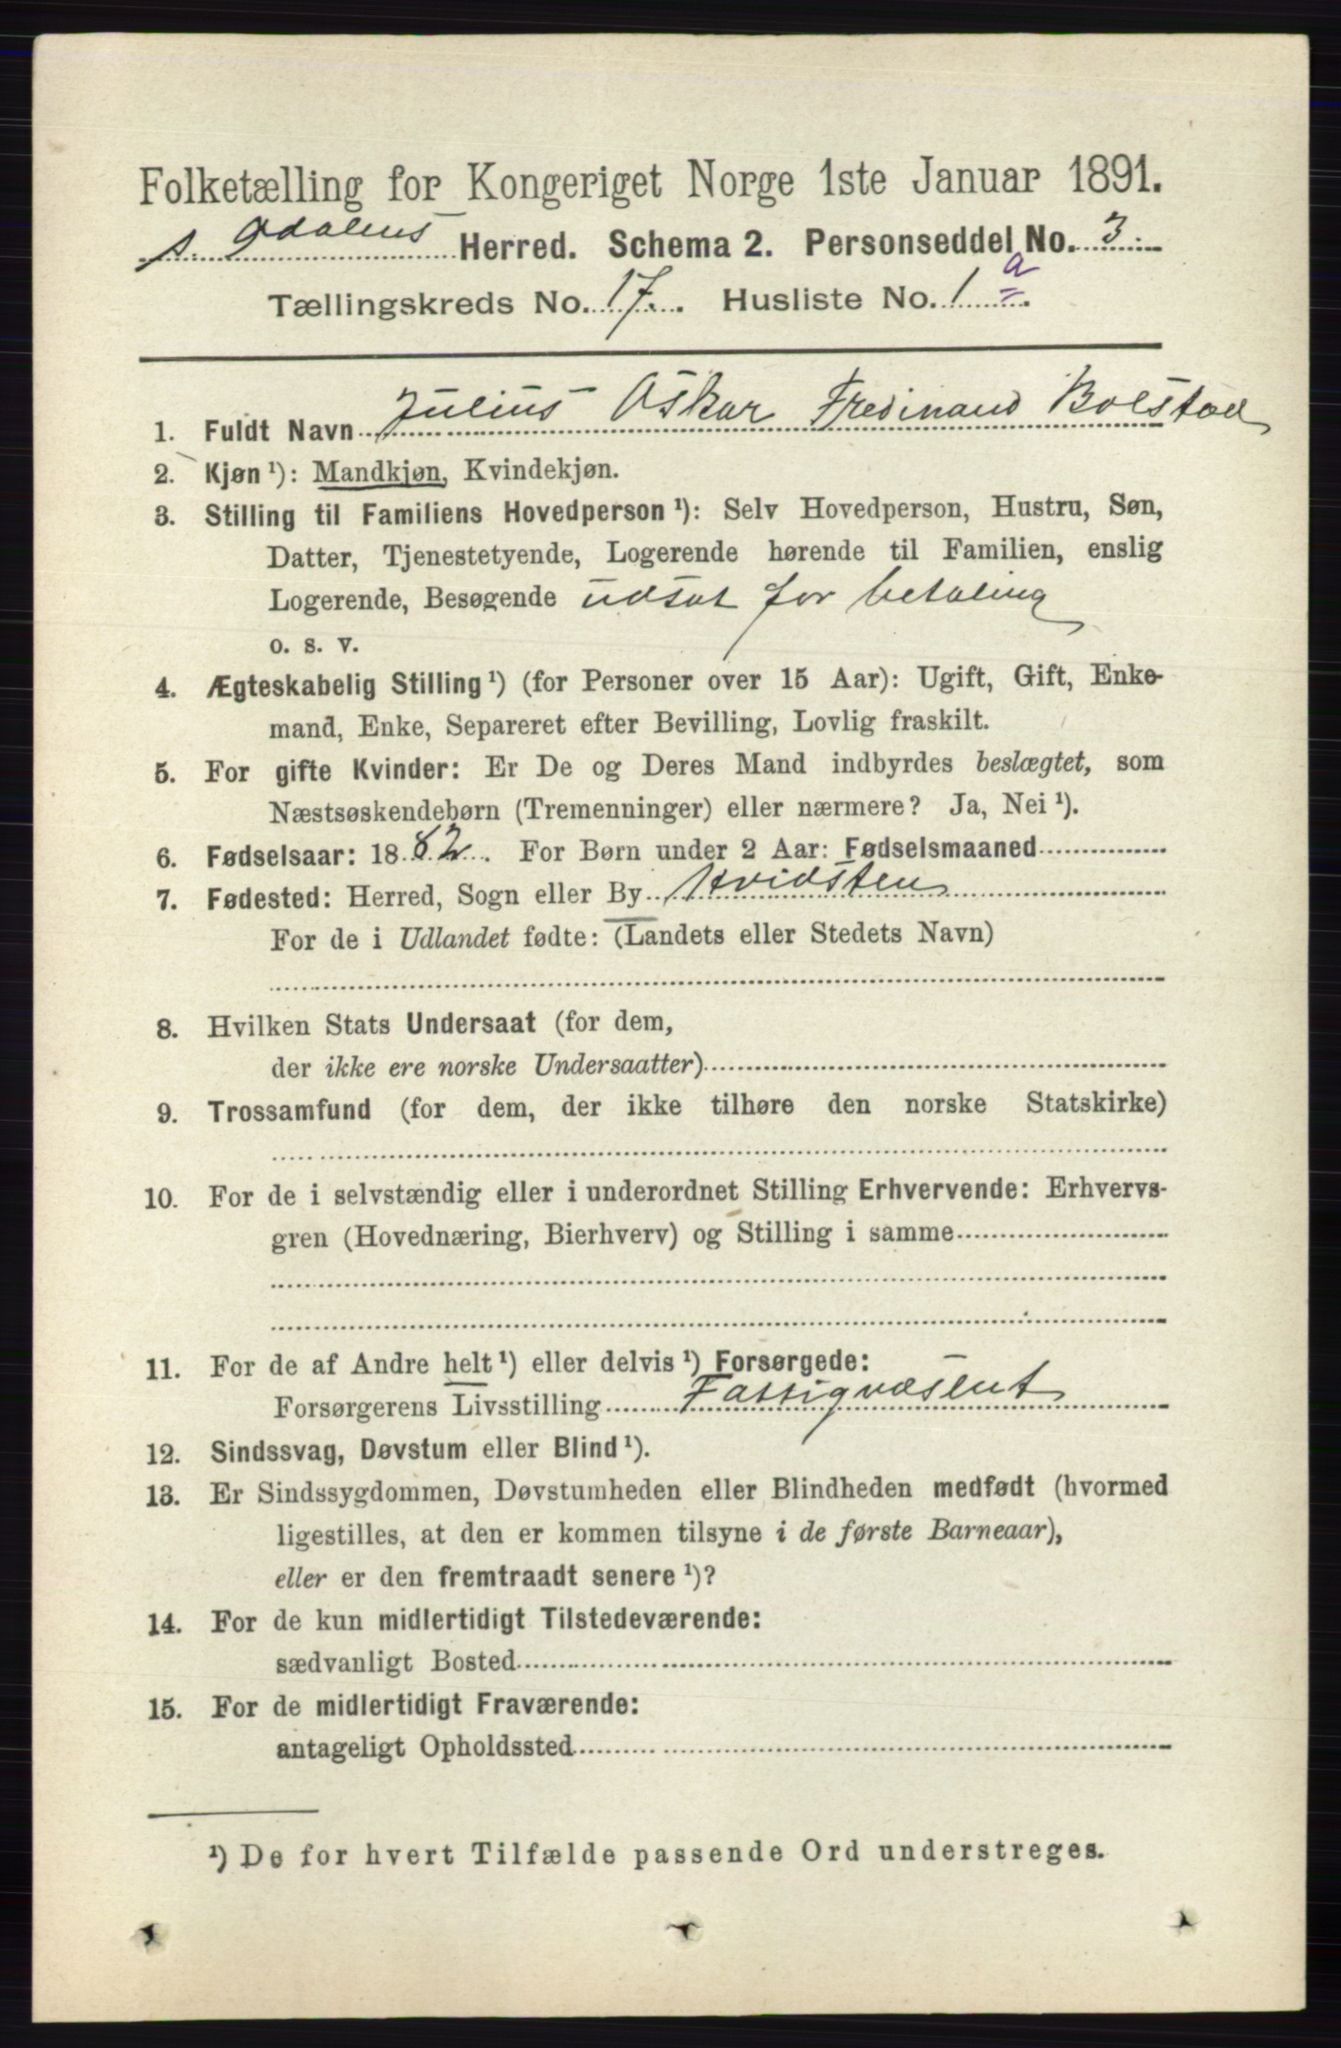 Folketælling for Kongeriget Norge 1ste Januar 1891.
s. Odalens Herred. Schema 2. Personseddel No. 3.
Tællingskreds No. 17. Husliste No. 1 a
1. Fuldt Navn Julius Oskar Fredinand Bolstad
2. Kjøn ¹): Mandkjøn, Kvindekjøn.
3. Stilling til Familiens Hovedperson ¹): Selv Hovedperson, Hustru, Søn,
Datter, Tjenestetyende, Logerende hørende til Familien, enslig
Logerende, Besøgende udsat for betaling
o. s. v.
4. Ægteskabelig Stilling ¹) (for Personer over 15 Aar): Ugift, Gift, Enke-
mand, Enke, Separeret efter Bevilling, Lovlig fraskilt.
5. For gifte Kvinder: Er De og Deres Mand indbyrdes beslægtet, som
Næstsøskendebørn (Tremenninger) eller nærmere? Ja, Nei ¹).
6. Fødselsaar: 1882. For Børn under 2 Aar: Fødselsmaaned
7. Fødested: Herred, Sogn eller By Hvidsten
For de i Udlandet fødte: (Landets eller Stedets Navn)
8. Hvilken Stats Undersaat (for dem,
der ikke ere norske Undersaatter)
9. Trossamfund (for dem, der ikke tilhøre den norske Statskirke)
10. For de i selvstændig eller i underordnet Stilling Erhvervende: Erhvervs-
gren (Hovednæring, Bierhverv) og Stilling i samme
11. For de af Andre helt ¹) eller delvis ¹) Forsørgede:
Forsørgerens Livsstilling Fattigvæsent
12. Sindssvag, Døvstum eller Blind ¹).
13. Er Sindssygdommen, Døvstumheden eller Blindheden medfødt (hvormed
ligestilles, at den er kommen tilsyne i de første Barneaar),
eller er den fremtraadt senere ¹)?
14. For de kun midlertidigt Tilstedeværende:
sædvanligt Bosted
15. For de midlertidigt Fraværende:
antageligt Opholdssted
¹) De for hvert Tilfælde passende Ord understreges.